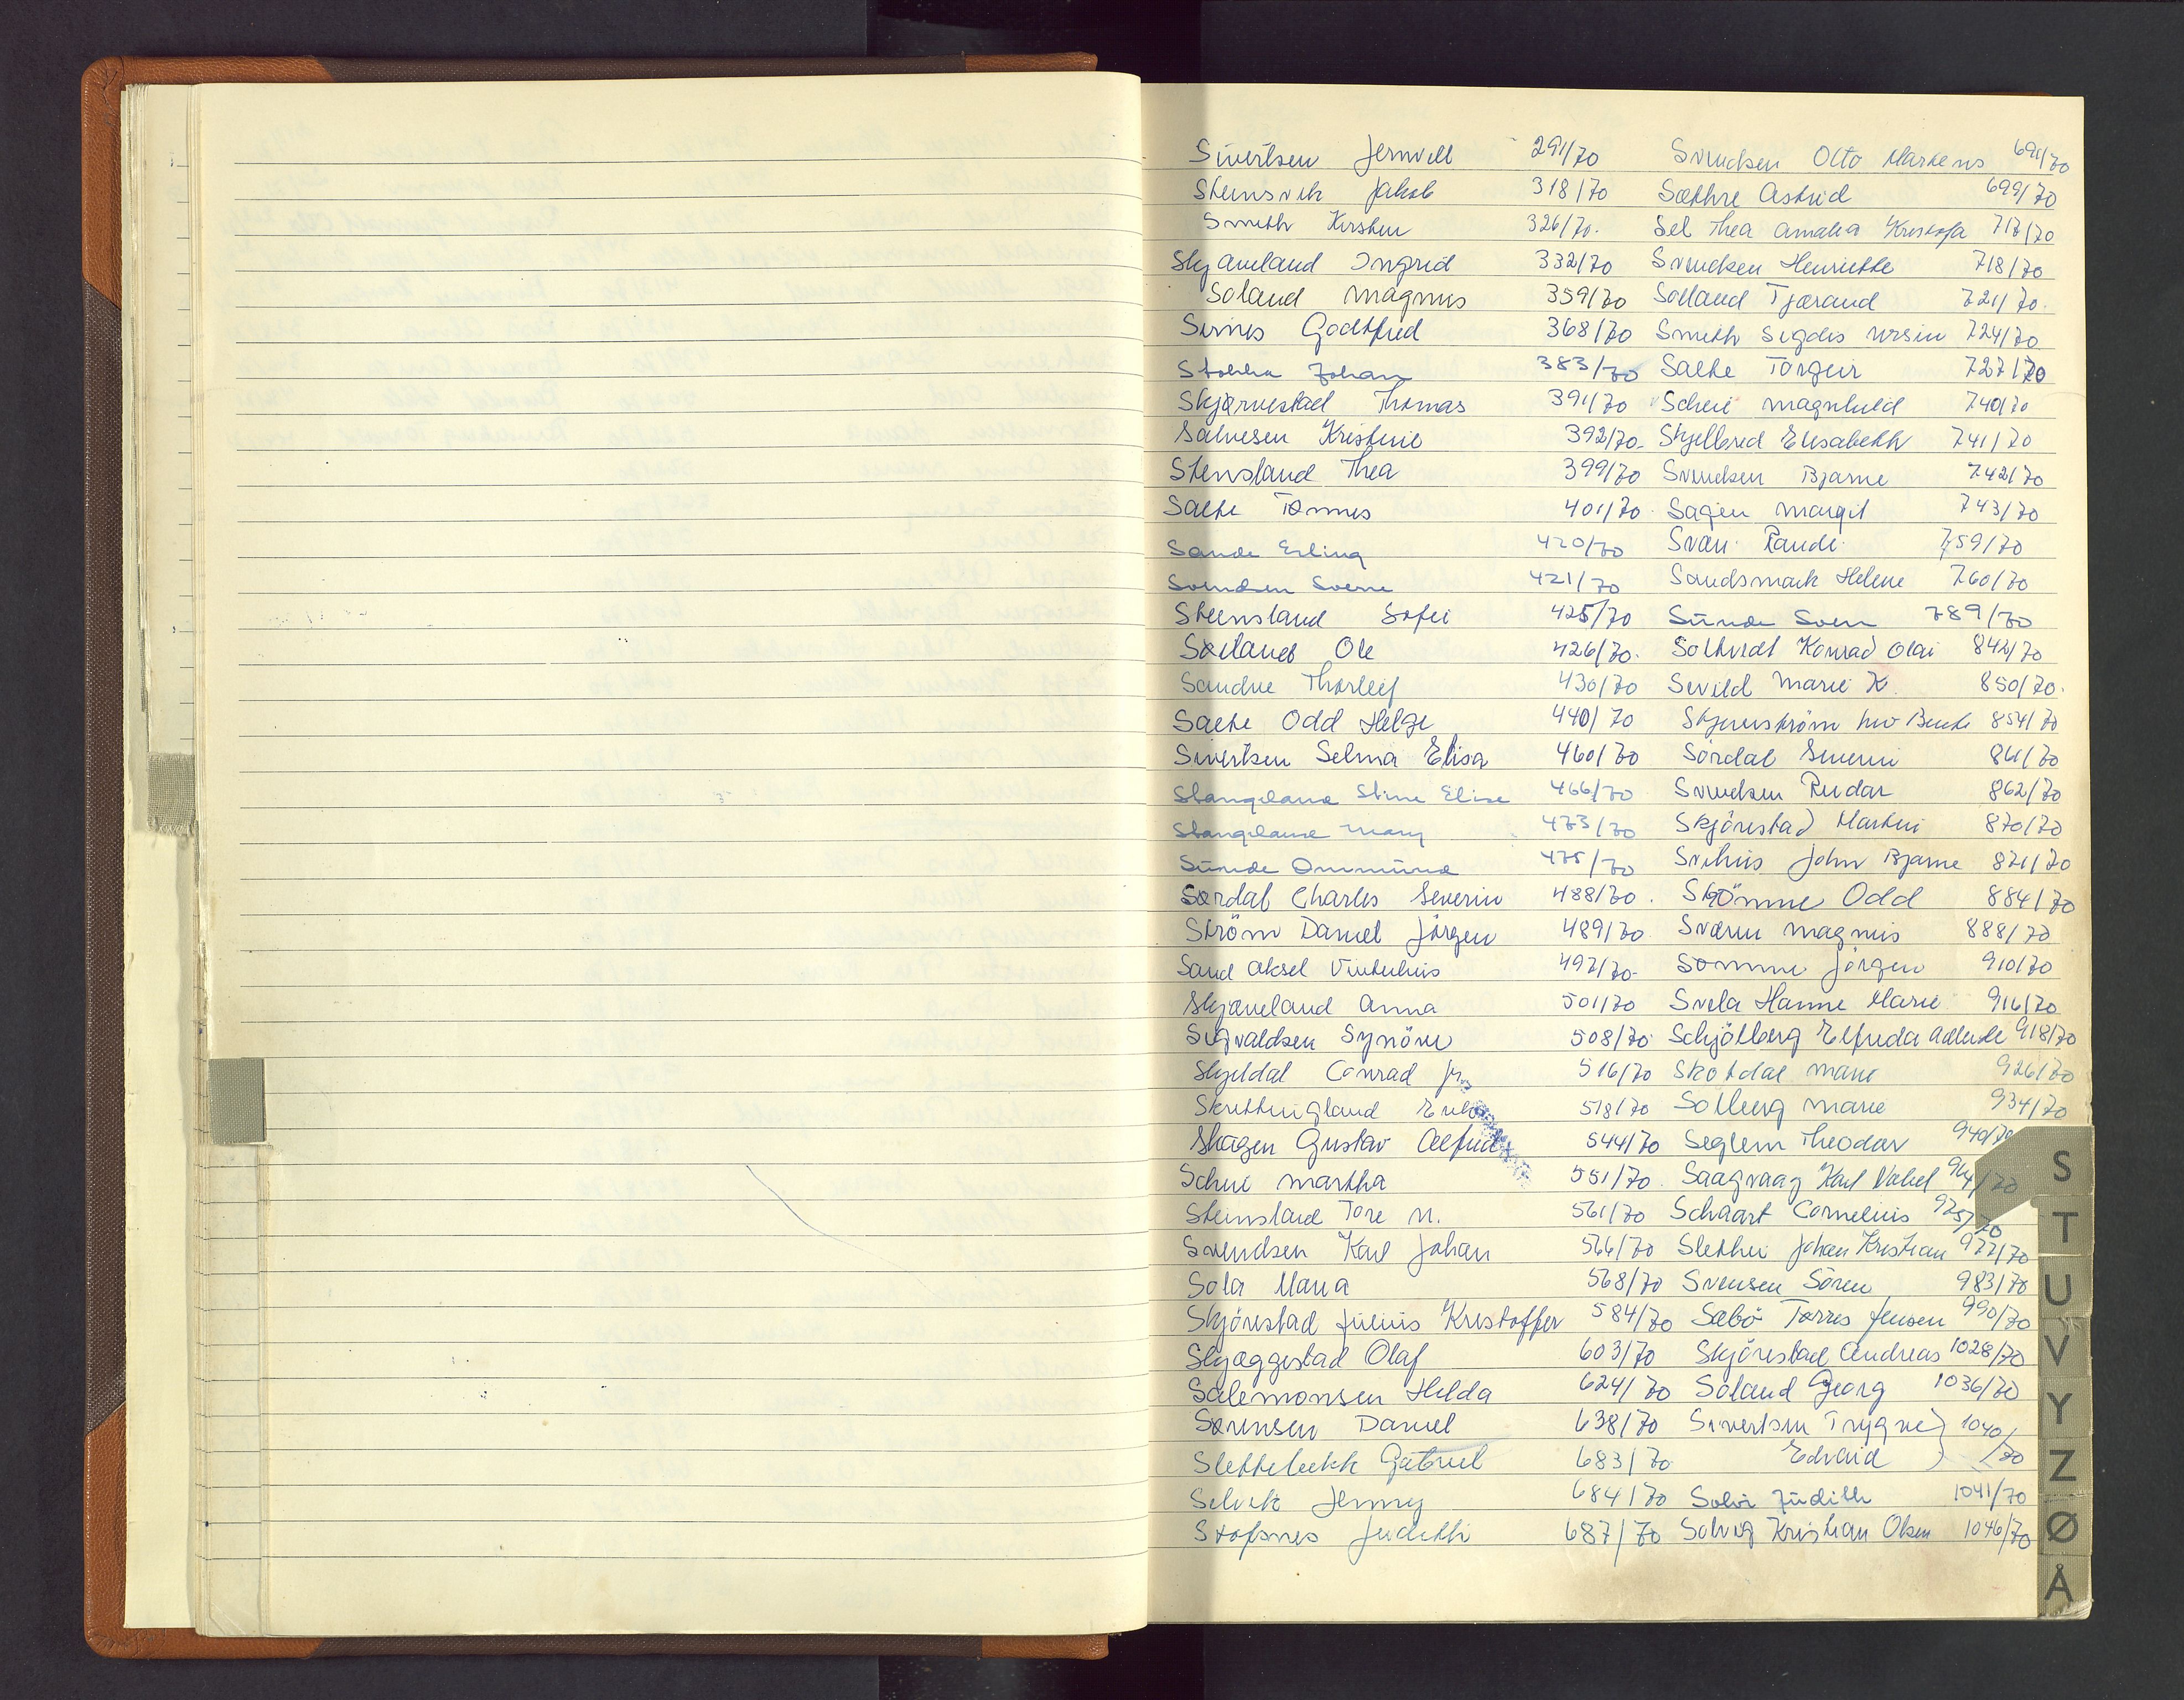 Sivertsen Jernvell 291/70
Steinsvik Jakob 318/70
Smith Kirsten 326/70.
Skjæveland Ingrid 332/70
Soland Magnus 359/70
Sirnes Godtfred 368/70
Stokka Johan 383/70
Skjærvestad Thomas 391/70
Salvesen Kristine 392/70.
Stensland Thea 399/70
Salte Tønnes 401/70.
Sande Erling 420/70
Svendsen Sverre 421/70
Steensland Sofie 425/70
Sæland Ole 426/70.
Sandve Thorleif 430/70
Salte Odd Helge 440/70
Sivertsen Selma Elisa 460/70
Stangeland Stine Elise 466/70
Stangeland Mary 473/70
Sunde Ommund 475/70
Sørdal Charles Severin 488/70.
Ström Daniel Jörgen 489/70
Sand Aksel Vinterhus 492/70.
Skjæveland Anna 501/70
Sigvaldsen Synöve 508/70
Skjeldal Conrad jr. 516/70
Skrettingland 518/70
Skagen Gustav Alfred 544/70
Schei Martha 551/70.
Steinsland Tore M. 561/70
Svendsen Karl Johan 566/70
Sola Maria 568/70
Skjörestad Julius Kristoffer 584/70
Skjæggestad Olaf 603/70
Salemonsen Hilda 624/70
Sørensen Daniel 638/70
Slettebakk Gabriel 683/70
Selvik Jenny 684/70
Stofsnes Judith 687/70
Svendsen Otto Markens 691/70
Sæthre Astrid 699/70
Sel Thea Amalia Kristofa 717/70
Svendsen Henriette 718/70
Solland Tjæraand 721/70.
Smith Sigdis Ursin 724/70
Salte Torgeir 727/70
Schei Magnhild 740/70
Skjelbred Elisabeth 741/70
Svendsen Bjarne 742/70
Sagen Margit 743/70
Svan Randi 759/70
Sandsmark Helene 760/70
Sunde Sven 789/70
Soltvedt Konrad Olai 842/70
Sevild Marie K. 850/70.
Stjernström Beate 854/70
Sördal Severin 861/70
Svendsen Reidar 862/70
Skjörestad Martin 870/70
Svihus John Bjarne 871/70
Strömme Odd 884/70
Sværen Magnus 888/70
Sømme Jörgen 910/70
Svela Hanne Marie 916/70
Schjölberg Elfrida 918/70
Skotdal Marie 926/70
Solberg Marie 934/70
Seglem Theodor 940/70
Saagvaag Karl 964/70
Schaart Cornelius 975/70
Slethei Johan Kristian 977/70
Svensen Sören 983/70
Sæbö Torres Jensen 990/70
Skjörestad Andreas 1028/70
Soland Georg 1036/70
Sivertsen Trygve } 1040
Edvard } /70
Solvi Judith 1041/70
Solvig Kristian Olsen 1046/70
S
T
U
V
Y
Z
Ø
Å